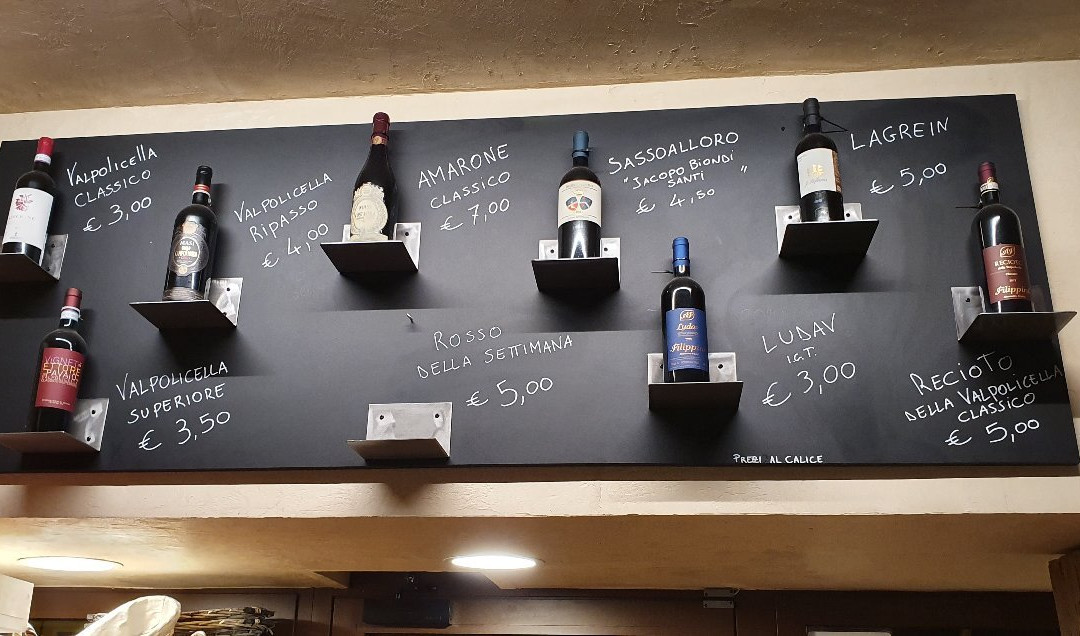 Valpolicella
CLASSICO
€ 3,00
VALPOLICELLA
RIPASSO
€ 4,00
AMARONE
CLASSICO
€ 7,00
SASSOALLORO
"JACOPO BIONDI
SANTI"
€ 4,50
LAGREIN
€ 5,00
VALPOLICELLA
SUPERIORE
€ 3,50
ROSSO
DELLA SETTIMANA
€ 5,00
LUDAV
I.G.T.
€ 3,00
RECIOTO
DELLA VALPOLICELLA
CLASSICO
€ 5,00
PREZZI AL CALICE
MASI
VIGNETI
ETTORE
Filippi
RECIOTO